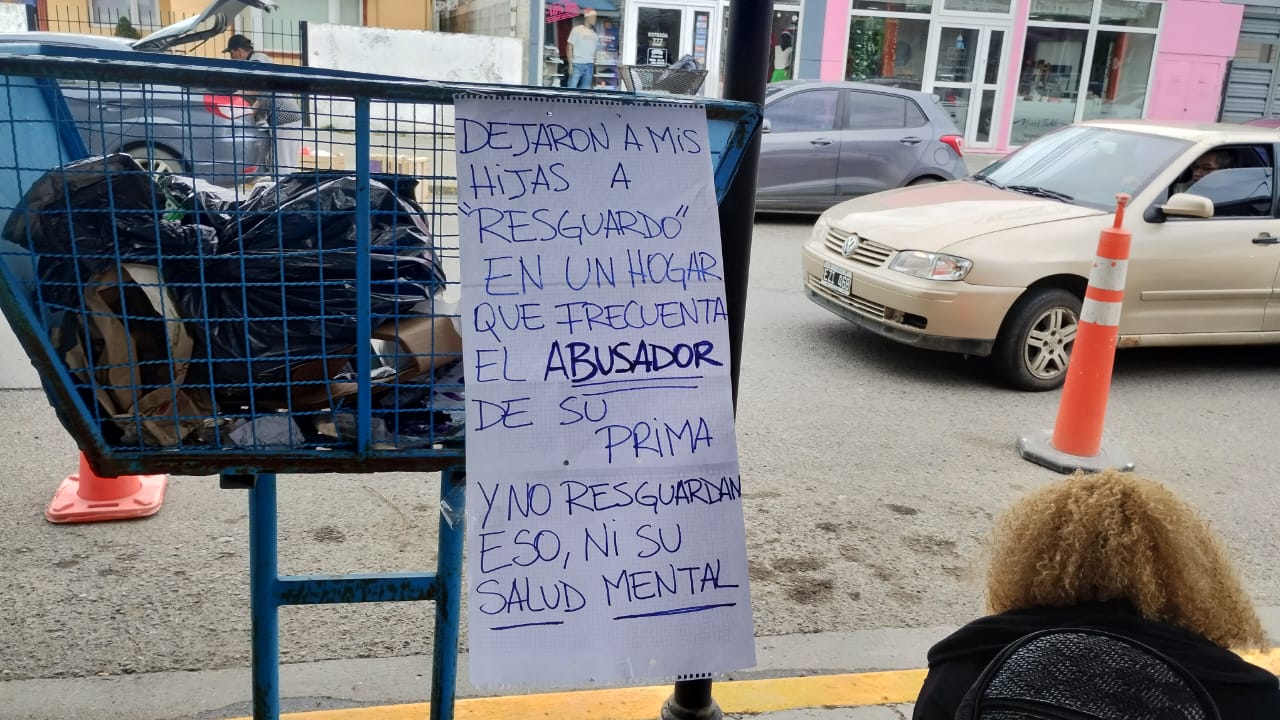 DEJARON A MIS
HIJAS A
"RESGUARDO"
EN UN HOGAR
QUE FRECUENTA
EL ABUSADOR
DE SU
PRIMA
Y NO RESGUARDAN
ESO, NI SU
SALUD MENTAL
ENTRADA
777